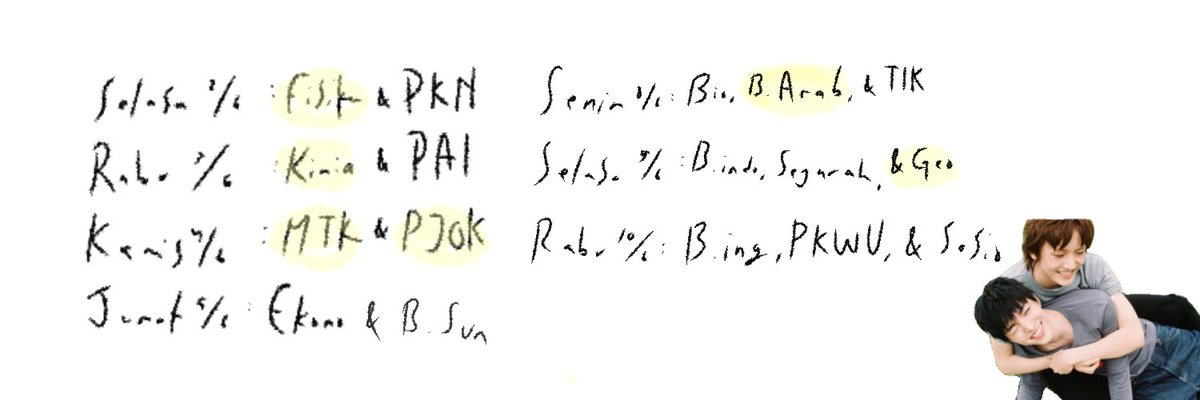 Selasa 2/6 : Fisika & PKN
Rabu 3/6 : Kimia & PAI
Kamis 4/6 : MTK & PJOK
Jumat 5/6 : Ekono & B. Sun
Senin 8/6 : Bio, B. Arab, & TIK
Selasa 9/6 : B. indo, Sejarah, & Geo
Rabu 10/6 : B. ing, PKWU, & Sosio